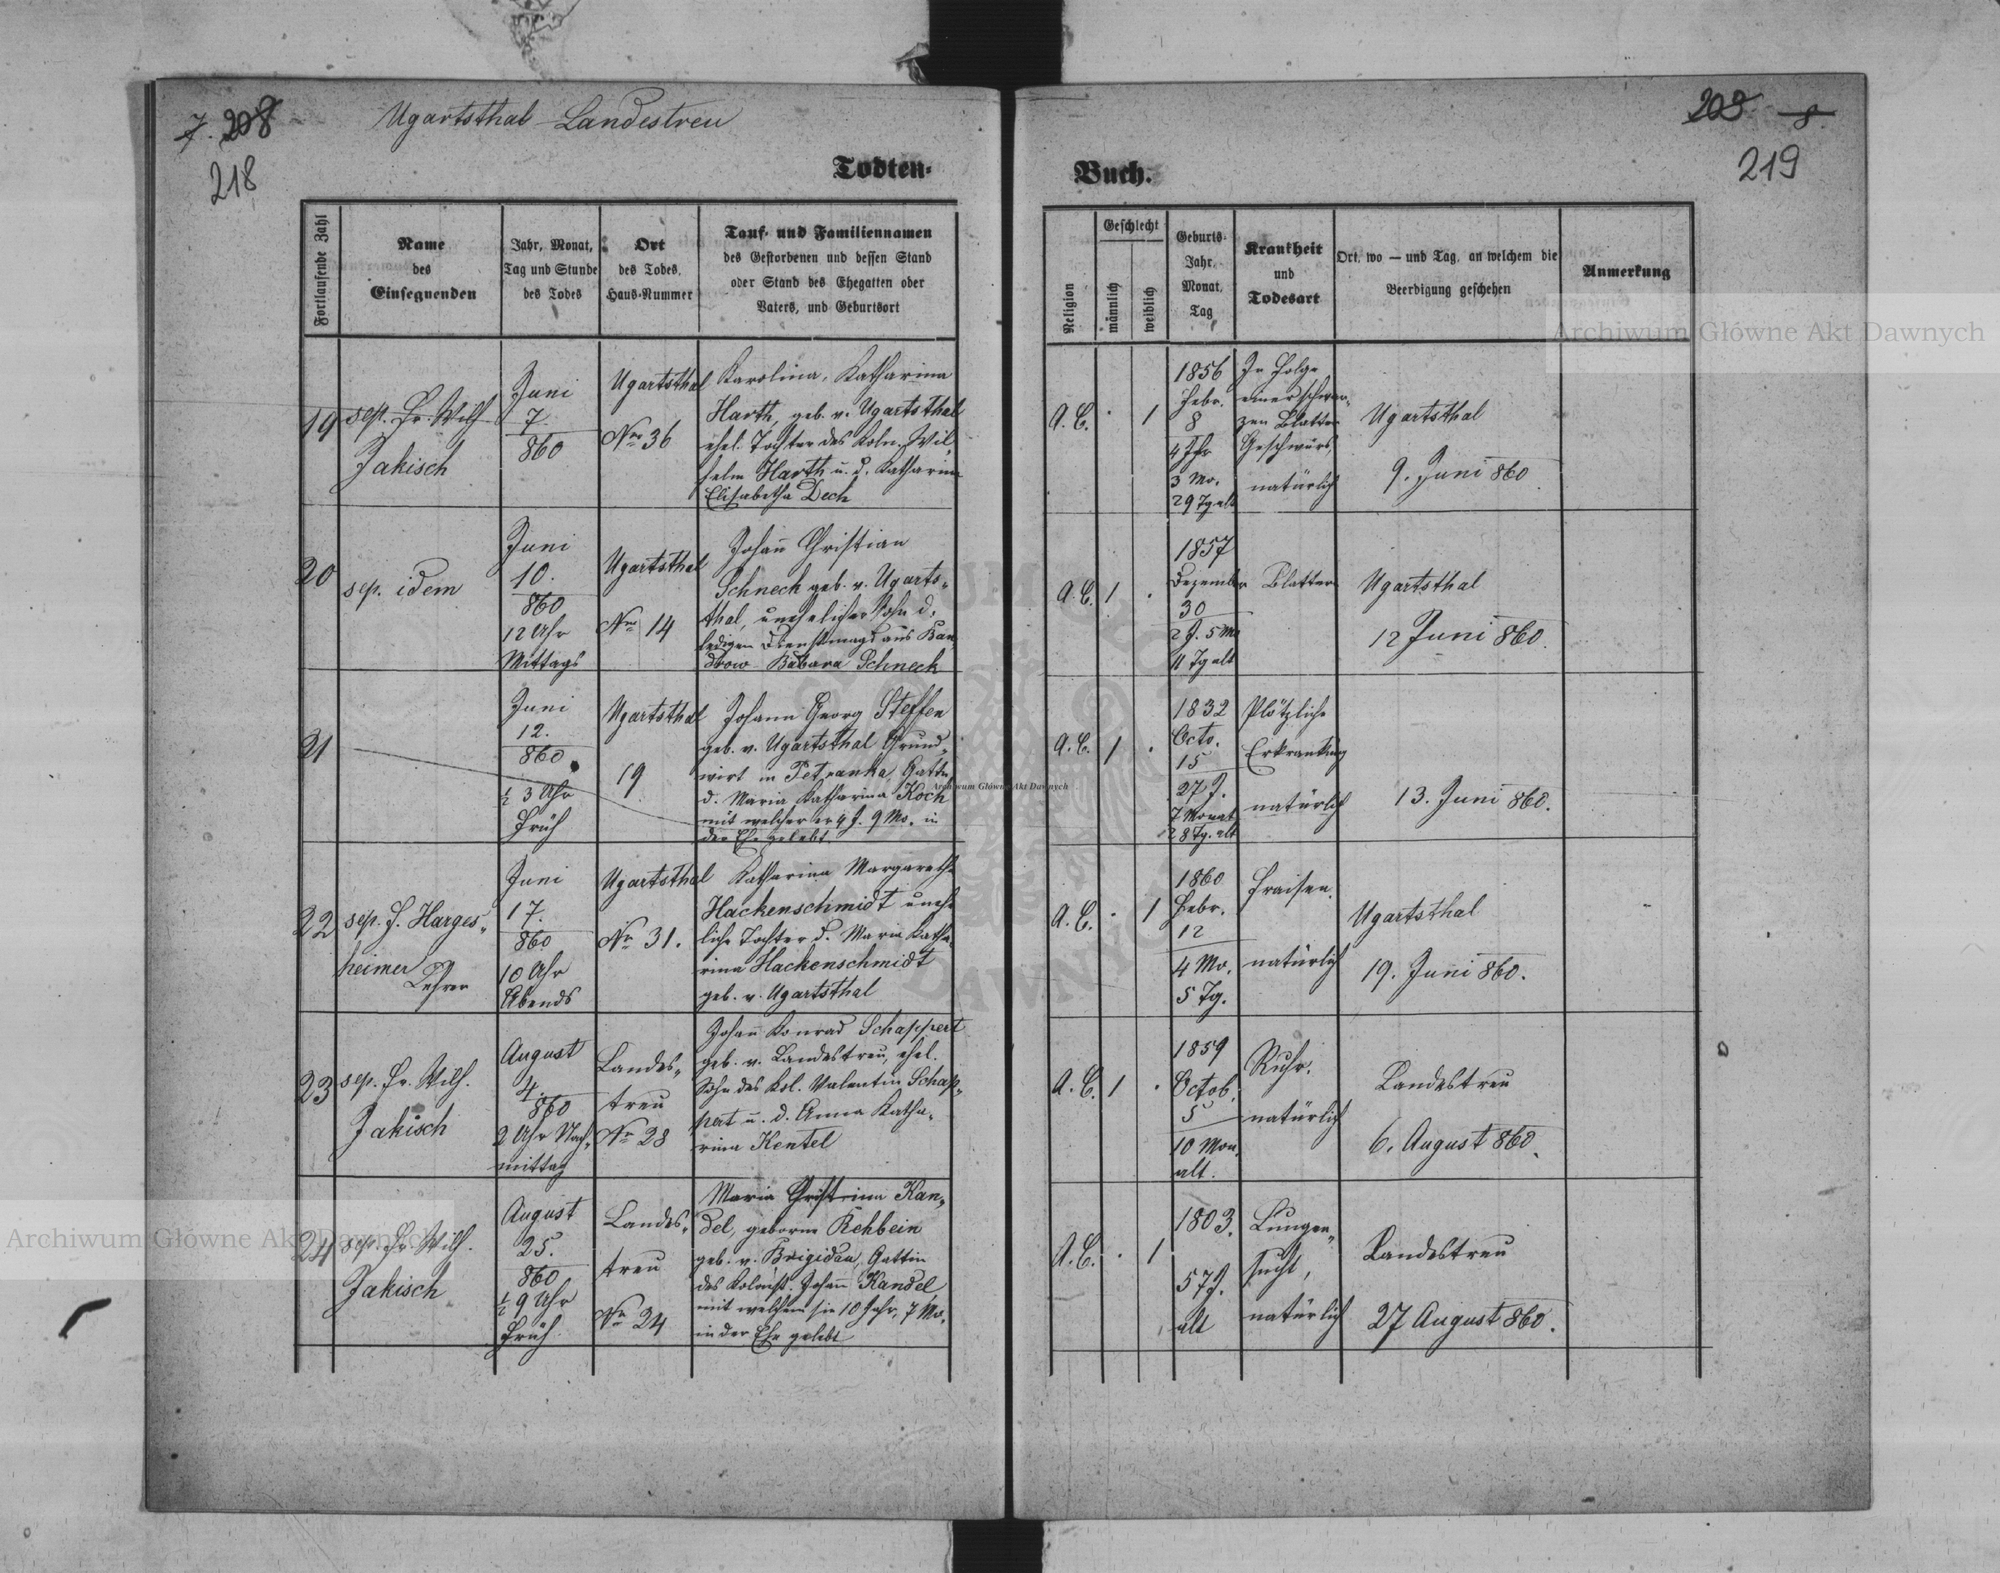 7. 208
218
Ugartsthal-Landestreu
Todten-
Fortlaufende Zahl
Name
des
Einsegnenden
Jahr, Monat,
Tag und Stunde
des Todes
Ort
des Todes,
Haus-Nummer
Tauf- und Familiennamen
des Gestorbenen und dessen Stand
oder Stand des Ehegatten oder
Vaters, und Geburtsort
19
sep. Fr. Wilh
Jakisch
Juni
7.
860
Ugartsthal
Nro 36
Karolina, Katharina
Harth, geb. v. Ugartsthal
ehel. Tochter des Koln. Wil-
helm Harth u. d. Katharina
Elisabetha Dech
20
sep. idem
Juni
10.
860
12 Uhr
Mittags
Ugartsthal
Nro 14
Johann Christian
Schneck geb. v. Ugarts-
thal, unehelicher Sohn d.
ledigen Dienstmagd aus Ban-
drow Babara Schneck
21
Juni
12.
860
½ 3 Uhr
Früh
Ugartsthal
19
Johann Georg Steffen
geb. v. Ugartsthal Grund-
wirt in Petranka, Gatte
d. Maria Katharina Koch
mit welcher er 4 J. 9 Mo. in
der Ehe gelebt.
22
sep. J. Harges-
heimer
Lehrer
Juni
17.
860
10 Uhr
Abends
Ugartsthal
Nr 31.
Katharina Margaretha
Hackenschmidt unehe
liche Tochter d. Maria Katha-
rina Hackenschmidt
geb. v. Ugartsthal
23
sep. Fr. Wilh.
Jakisch
August
4.
860
2 Uhr Nach-
mittag
Landes-
treu
Nr 28
Johann Konrad Schappert
geb. v. Landestreu, ehel.
Sohn des Kol. Valentin Schap-
pert u. d. Anna Katha-
rina Kentel
24
sep. Fr. Wilh.
Jakisch
August
25.
860
½ 9 Uhr
Früh.
Landes-
treu
Nr 24
Maria Christina Kan-
del, geborne Rehbein
geb. v. Brigidau, Gattin
des Kolonist. Johann Kandel
mit welchem sie 10 Jahr, 7 Mo.
in der Ehe gelebt
209 8.
219
Buch.
Religion
Geschlecht
männlich
weiblich
Geburts-
Jahr,
Monat,
Tag
Krankheit
und
Todesart
Ort, wo — und Tag, an welchem die
Beerdigung geschehen
Anmerkung
A. C.
1
1856
Febr.
8
4 Jhr
3 Mo.
29 Tg alt
In Folge
einer schwar-
zen Blatter
Geschwürs,
natürlich
Ugartsthal
9. Juni 860.
A. C.
1
1857
Dezember
30
2 J. 5 Mo
11 Tg alt
Blattern
Ugartsthal
12 Juni 860.
A. C.
1
1832
Octo.
15
27 J.
7 Monat
28 Tg. alt
Plötzliche
Erkrankung
natürlich
13. Juni 860.
A. C.
1
1860
Febr.
12
4 Mo.
5 Tg.
Fraisen.
natürlich
Ugartsthal
19. Juni 860.
A. C.
1
1859
Octob.
5
10 Mon.
alt.
Ruhr.
natürlich
Landestreu
6. August 860.
A. C.
1
1803.
57 J.
alt
Lungen-
sucht,
natürlich
Landestreu
27 August 860.
Archiwum Główne Akt Dawnych
Archiwum Główne Akt Dawnych
Archiwum Główne Akt Dawnych